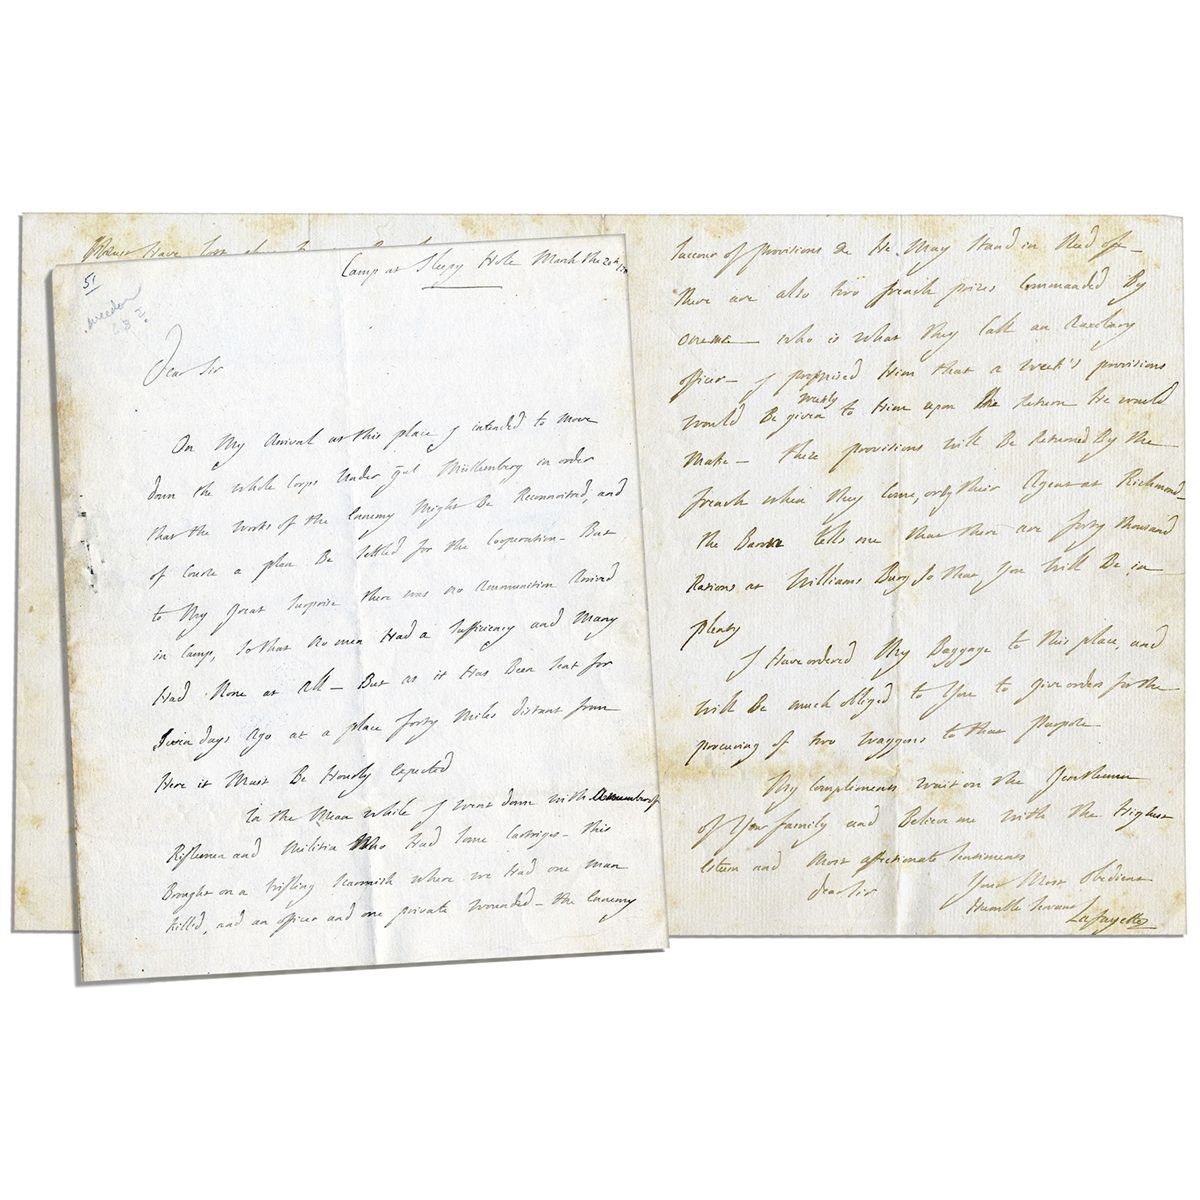 51
Weedon
Camp at Sleepy Hole March the 20th
Dear Sir
On My Arrival at this place I intended to Move
down the whole Corps Under gnl Muhlemberg in order
that the works of the Ennemy Might Be Reconnoitred, and
of Course a plan Be Settled for the Cooperation — But
to My great Surprise there was no Ammunition Arrived
in Camp, So that no men Had a Sufficiency and Many
Had None at All — But as it Has Been Sent for
days Ago at a place forty Miles distant from
Here it Must Be Hourly Expected
In the Mean while I went down with a number of
Riflemen and Militia Who Had Some Cartriges — this
Brought on a trifling Scarmish where we Had one man
Killed, and an officer and one private wounded — the Ennemy
Have
Succour of provisions &c He May Stand in Need of —
there are also two french prizes Commanded By
one — who is what they Call an Auxiliary
officer — I promised Him that a week's provisions
would Be given to Him upon the Return He would
Make — these provisions will Be Returned By the
french when they Come, only their Agent at Richmond —
the Baron tells me that there are forty thousand
Rations at Williams Burg So that You Will Be in
plenty
I Have ordered My Baggage to this place, and
Will Be much obliged to You to give orders for the
procuring of two waggons to that Purpose
My Compliments wait on the Gentlemen
of Your family and Believe me with the Highest
Esteem and Most affectionate Sentiments
dear Sir
Your Most obedient
Humble Servant
Lafayette